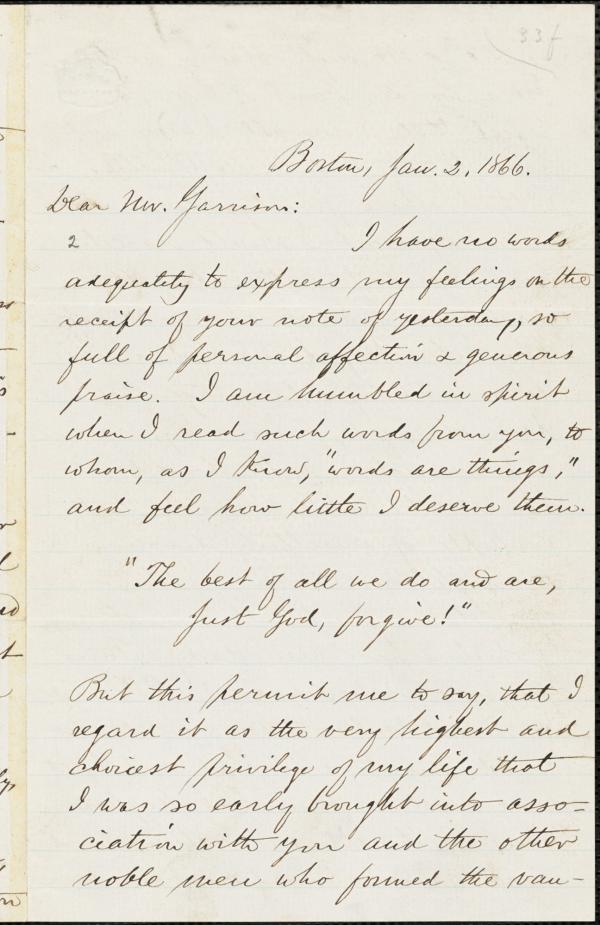 33f
Boston, Jan. 2, 1866.
Dear Mr. Garrison:
2
I have no words
adequately to express my feelings on the
receipt of your note of yesterday, so
full of personal affection & generous
praise. I am humbled in spirit
when I read such words from you, to
whom, as I know, "words are things,"
and feel how little I deserve them.
"The best of all we do and are,
Just God, forgive!"
But this permit me to say, that I
regard it as the very highest and
choicest privilege of my life that
I was so early brought into asso-
ciation with you and the other
noble men who formed the van-